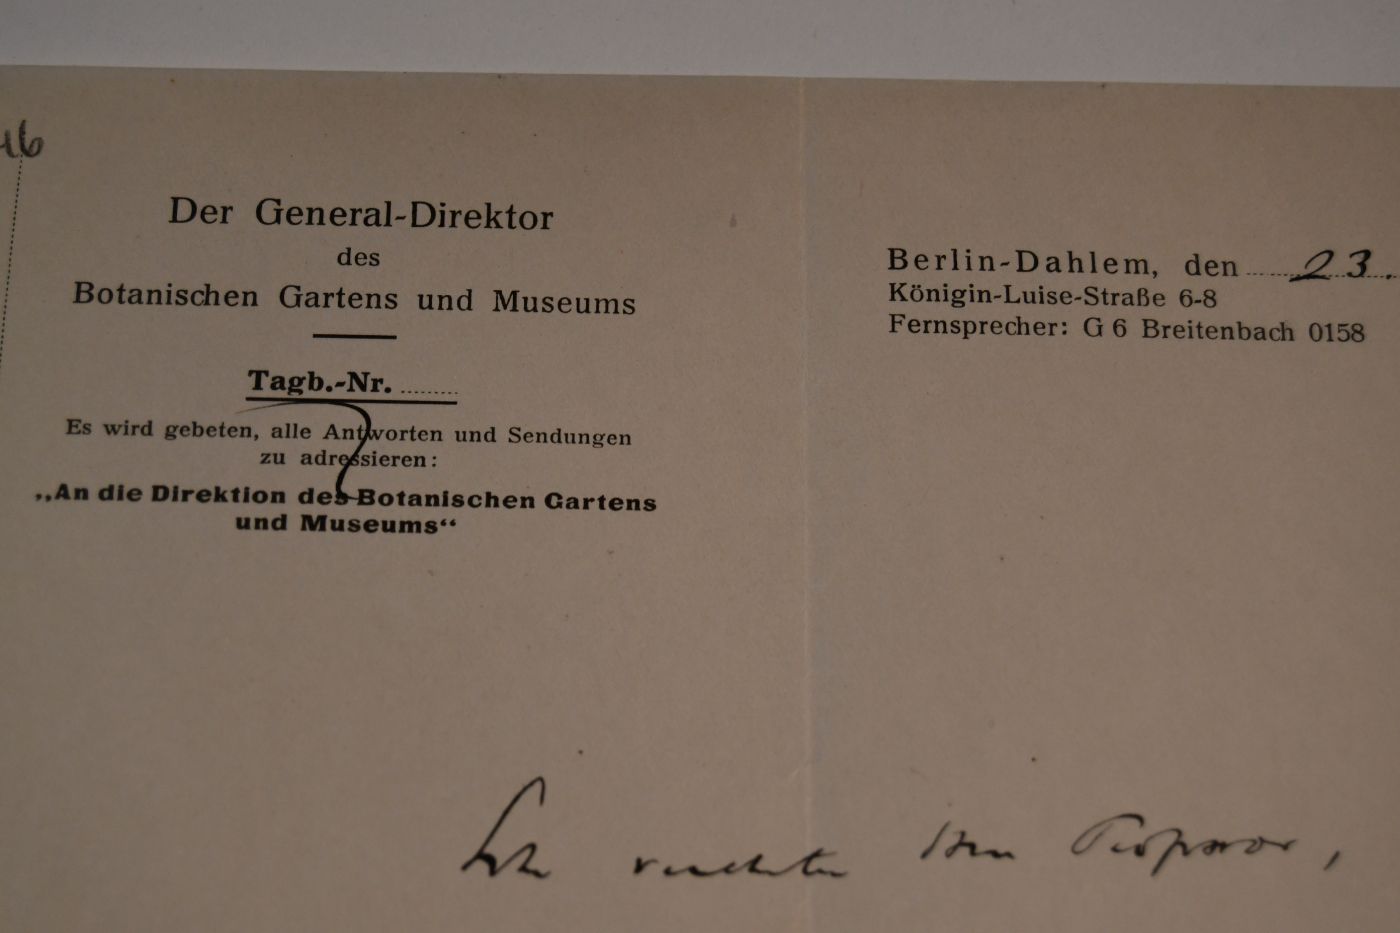 46
Der General-Direktor
des
Botanischen Gartens und Museums
Tagb.-Nr. ........
Es wird gebeten, alle Antworten und Sendungen
zu adressieren:
„An die Direktion des Botanischen Gartens
und Museums“
Berlin-Dahlem, den 23.
Königin-Luise-Straße 6-8
Fernsprecher: G 6 Breitenbach 0158
Sehr verehrter Herr Professor,